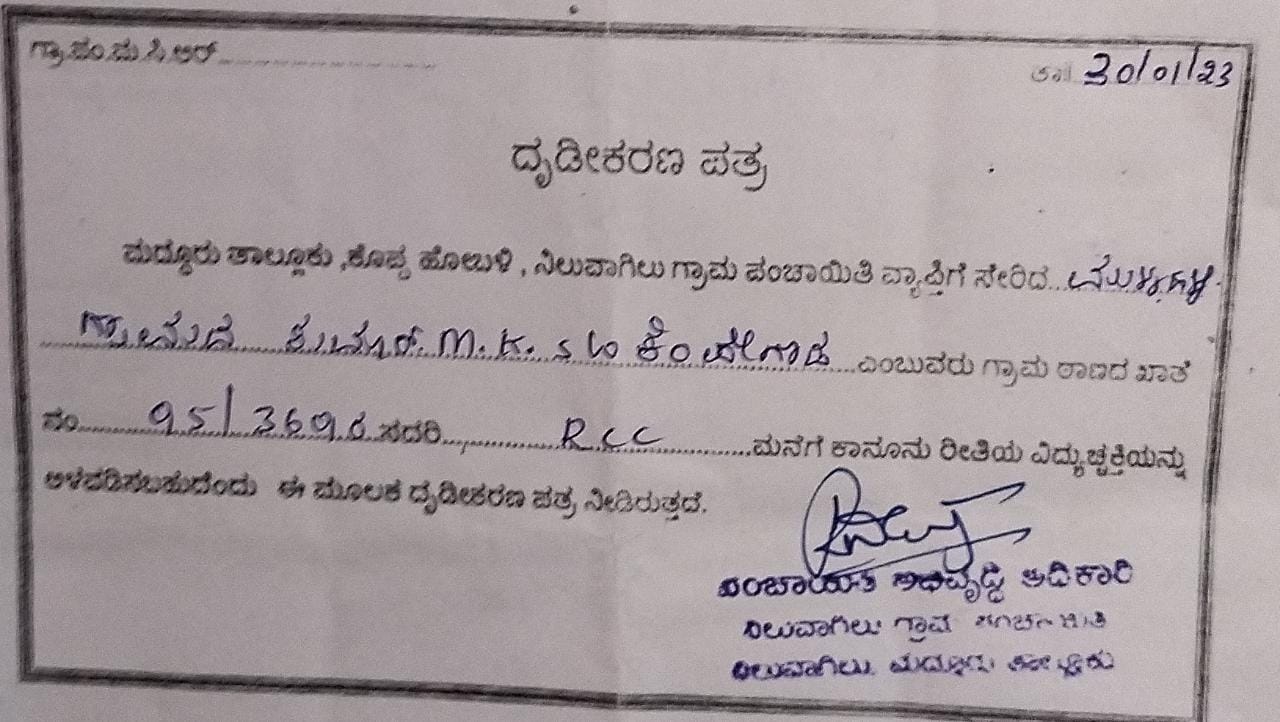 ಗ್ರಾ.ಪಂ.ಮ.ಸಿ.ಆರ್...................... ತಾ॥ 30/01/23
ದೃಡೀಕರಣ ಪತ್ರ
ಮದ್ದೂರು ತಾಲ್ಲೂಕು ,ಕೊಪ್ಪ ಹೋಬಳಿ , ನಿಲುವಾಗಿಲು ಗ್ರಾಮ ಪಂಚಾಯಿತಿ ವ್ಯಾಪ್ತಿಗೆ ಸೇರಿದ...
ಗ್ರಾಮದ ಕುಮಾರ್. M.K. s/o ಕೆಂಪೇಗೌಡ ಎಂಬುವರು ಗ್ರಾಮ ಠಾಣದ ಖಾತೆ
ನಂ 95/ ಸದರಿ RCC ಮನೆಗೆ ಕಾನೂನು ರೀತಿಯ ವಿದ್ಯುಚ್ಚಕ್ತಿಯನ್ನು
ಅಳವಡಿಸಬಹುದೆಂದು ಈ ಮೂಲಕ ದೃಡೀಕರಣ ಪತ್ರ ನೀಡಿರುತ್ತದೆ.
ಪಂಚಾಯತಿ ಅಭಿವೃದ್ಧಿ ಅದಿಕಾರಿ
ನಿಲುವಾಗಿಲು ಗ್ರಾಮ ಪಂಚಾಯಿತಿ
ನಿಲುವಾಗಿಲು. ಮದ್ದೂರು ತಾಲ್ಲೂಕು